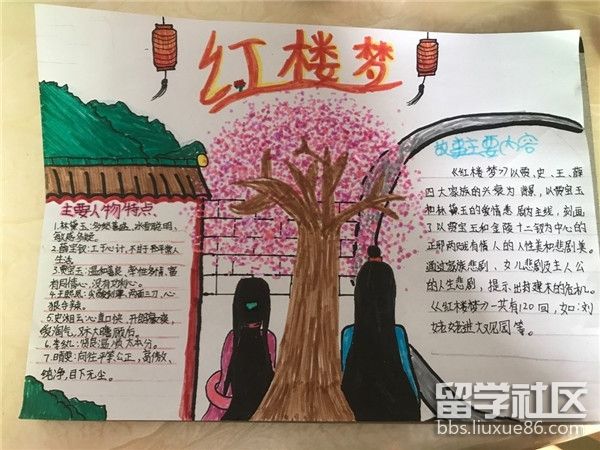 红楼梦
主要人物特点
1.林黛玉:多愁善感,冰雪聪明,
敏感多疑。
2.薛宝钗:工于心计,不甘于平常人
生活。
3.贾宝玉:温和善良,率性多情,富
有同情心,没有功利心。
4.王熙凤:尖酸刻薄,两面三刀,心
狠手辣。
5.史湘云:心直口快,开朗豪爽,
爱淘气,
6.李纨:
7.晴雯:向往平等公正,高傲、
纯净,目下无尘。
故事主要内容
《红楼梦》以贾、史、王、薛
四大家族的兴衰为背景,以贾宝玉
和林黛玉的爱情悲剧为主线,刻画了
以贾宝玉和金陵十二钗为中心的
正邪两赋有情人的人性美和悲剧美。
通过家族悲剧、女儿悲剧及主人公
的人生悲剧,揭示出封建末的危机。
《红楼梦》一共有120回,如:刘
姥姥进大观园等。
留学社区
bbs.liuxue86.com